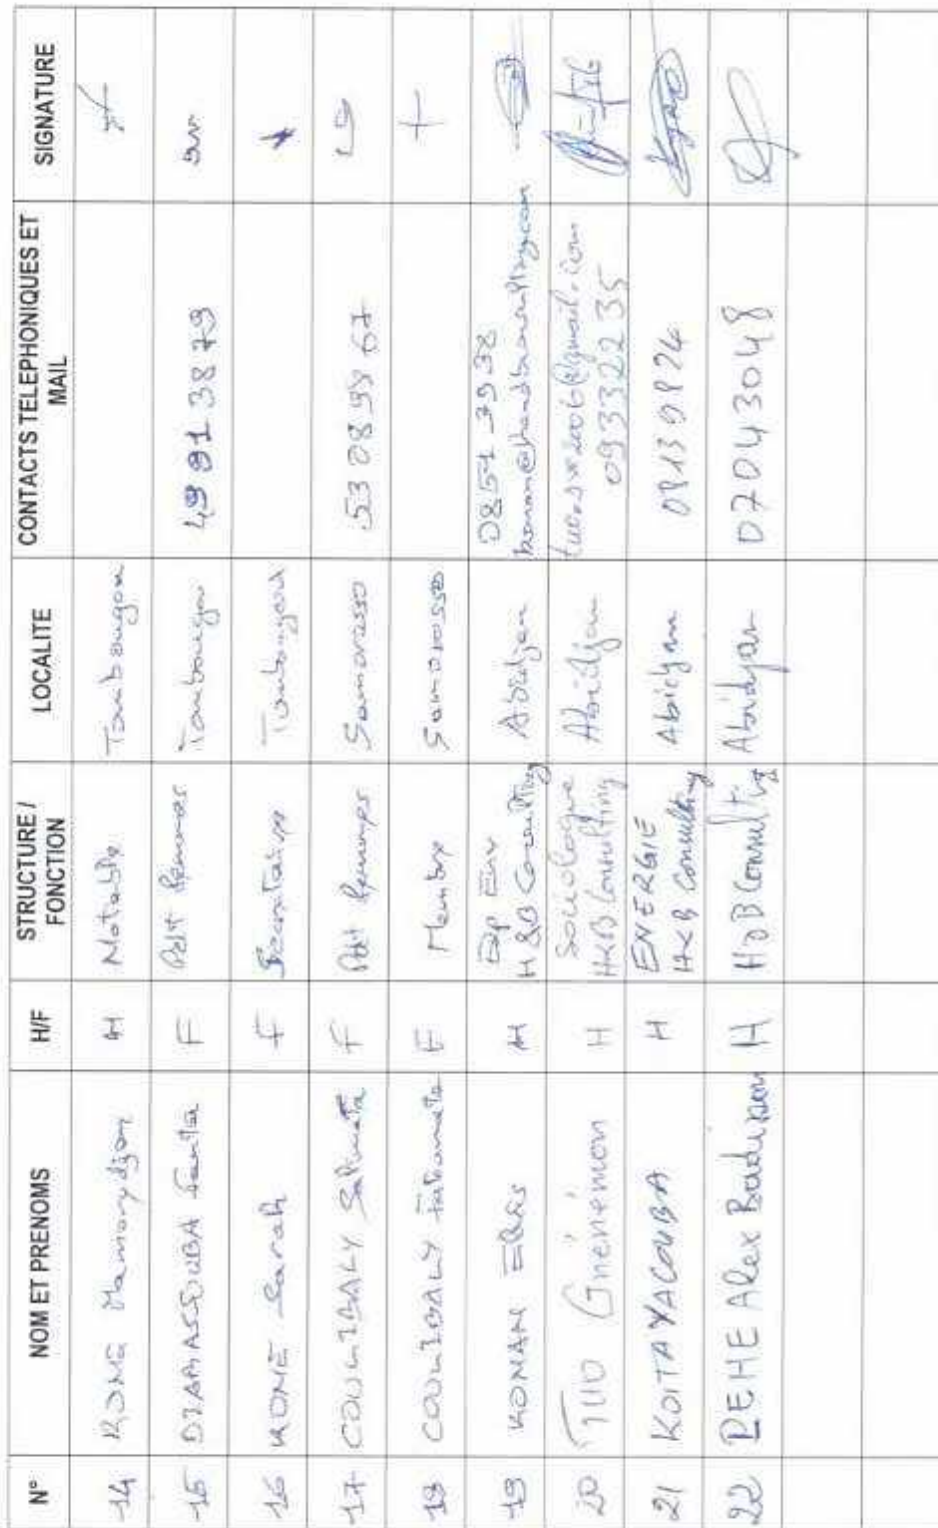 N° NOM ET PRENOMS H/F STRUCTURE / FONCTION LOCALITE CONTACTS TELEPHONIQUES ET MAIL SIGNATURE
14 KONE Mamorydjan H Notable Tombougou
15 DIARRASSOUBA Fanta F Pdt femmes Tombougou 49 91 38 79
16 KONE Sarah F Secretaire Tombougou
17 COULIBALY Salimata F Pdt femmes Samorosso 53 08 98 67
18 COULIBALY Fatoumata F Membre Samorosso
19 KONAN Elias H Exp Env Abidjan 0851 7938
H&B Consulting
20 TUO Gnenémon H Sociologue Abidjan
H&B Consulting 09332235
21 KOITA YACOUBA H ENERGIE Abidjan 08139824
H&B Consulting
22 DEHE Alex Badison H H&B Consulting Abidjan 07043048